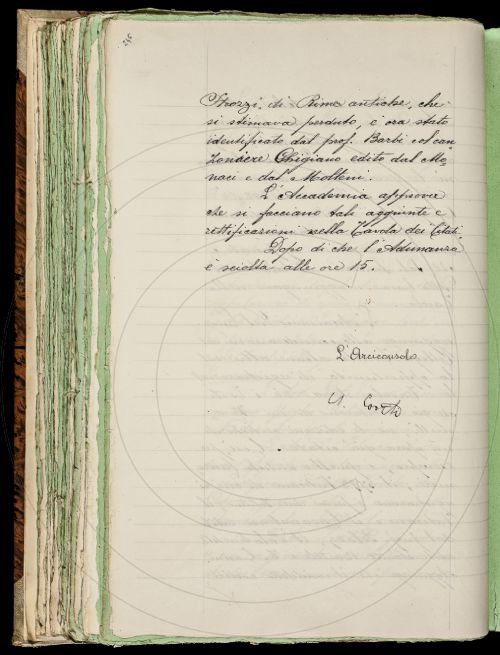 Strozzi, di Rime antiche, che
si stimava perduto, è ora stato
identificato dal prof. Barbi col can
zoniere Chigiano edito dal Mo-
naci e dal Molteni.
L'Accademia approva
che si facciano tali aggiunte e
rettificazioni nella Tavola dei Citati
Dopo di che l'Adunanza
è sciolta alle ore 15.
L'Arciconsolo